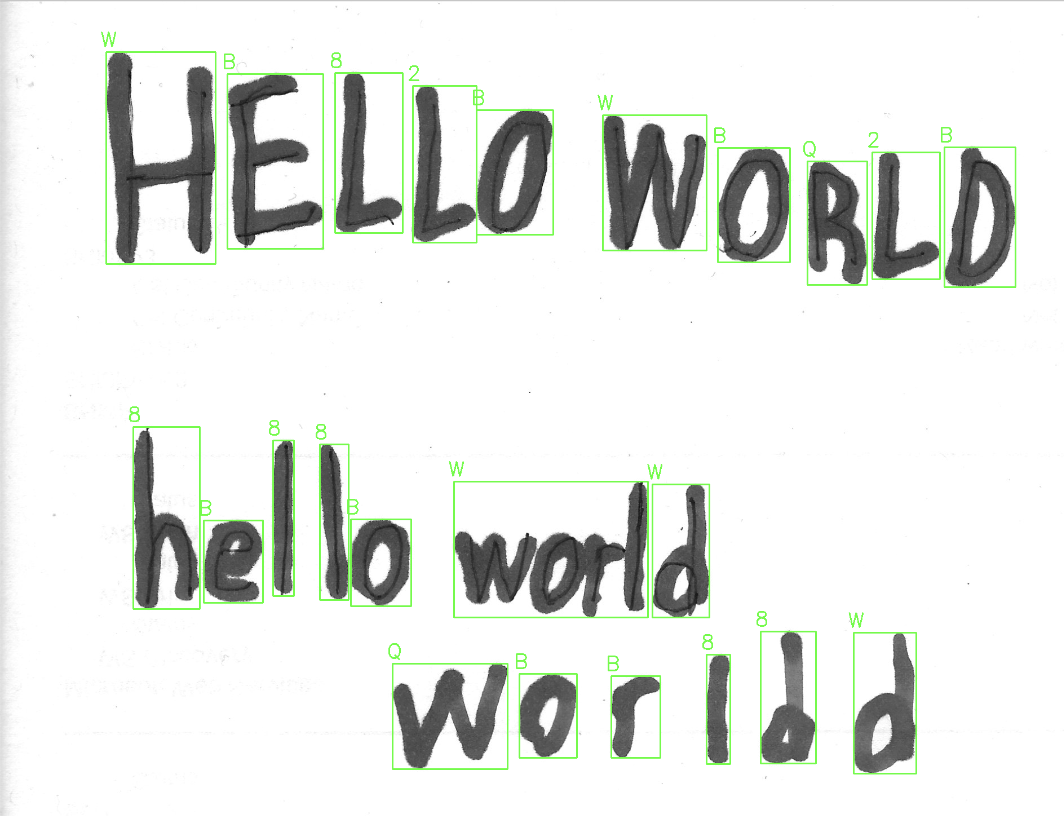 W B 8 2 B W B Q 2 B
HELLO WORLD
8 B 8 8 B W W
hello world
Q B B 8 8 W
w o r l d d